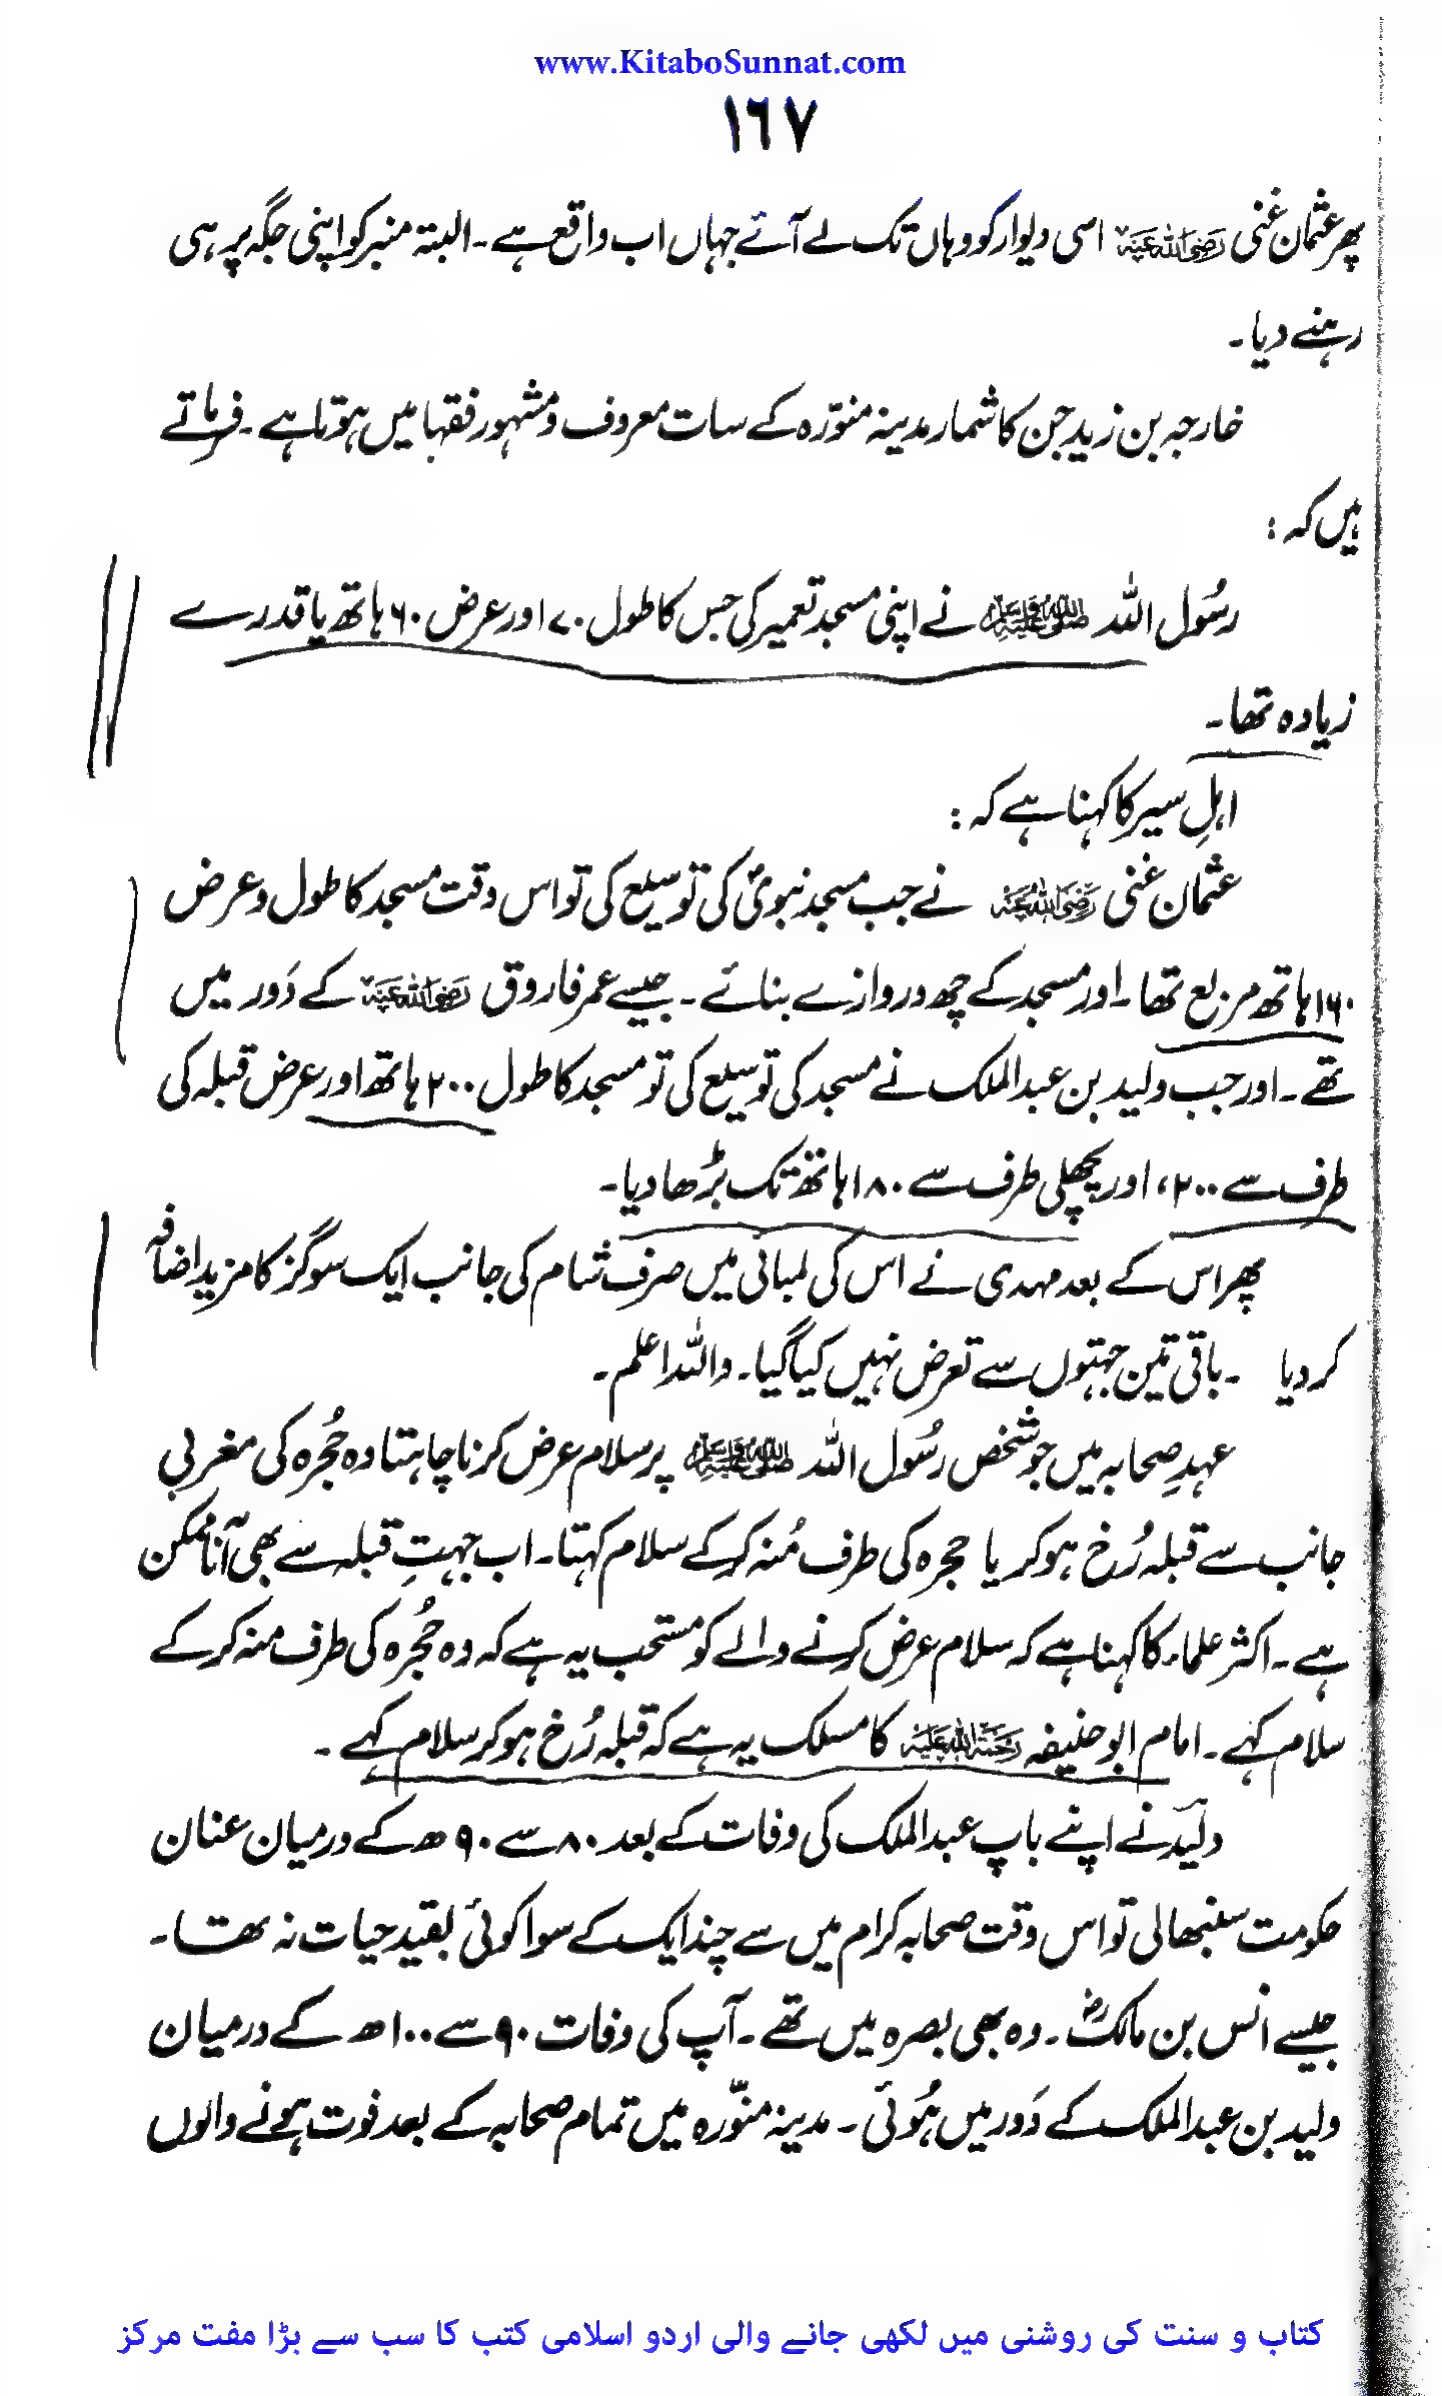 www.KitaboSunnat.com
١٦٧
پھر عثمان غنی رضی اللہ عنہ اسی دیوار کو وہاں تک لے آئے جہاں اب واقع ہے۔ البتہ منبر کو اپنی جگہ پر ہی
رہنے دیا۔
خارجہ بن زید جن کا شمار مدینہ منوّرہ کے سات معروف و مشہور فقہا میں ہوتا ہے۔ فرماتے
ہیں کہ :
رسُول اللہ صلی اللہ علیہ وسلم نے اپنی مسجد تعمیر کی جس کا طول ۷۰ اور عرض ۶۰ ہاتھ یا قدرے
زیادہ تھا۔
اہلِ سیر کا کہنا ہے کہ :
عثمان غنی رضی اللہ عنہ نے جب مسجد نبویؐ کی توسیع کی تو اس وقت مسجد کا طول و عرض
۱۶۰ ہاتھ مربع تھا۔ اور مسجد کے چھ دروازے بنائے۔ جیسے عمر فاروق رضی اللہ عنہ کے دَور میں
تھے۔ اور جب ولید بن عبدالملک نے مسجد کی توسیع کی تو مسجد کا طول ۲۰۰ ہاتھ اور عرض قبلہ کی
طرف سے ۲۰۰، اور پچھلی طرف سے ۱۸۰ ہاتھ تک بڑھا دیا۔
پھر اس کے بعد مہدی نے اس کی لمبائی میں صرف شام کی جانب ایک سو گز کا مزید اضافہ
کر دیا ۔ باقی تین جہتوں سے تعرض نہیں کیا گیا۔ واللہ اعلم۔
عہدِ صحابہ میں جو شخص رسُول اللہ صلی اللہ علیہ وسلم پر سلام عرض کرنا چاہتا وہ حُجرہ کی مغربی
جانب سے قبلہ رُخ ہو کر یا حجرہ کی طرف مُنہ کرکے سلام کہتا۔ اب جہتِ قبلہ سے بھی آنا ممکن
ہے۔ اکثر علماء کا کہنا ہے کہ سلام عرض کرنے والے کو مستحب یہ ہے کہ وہ حُجرہ کی طرف منہ کر کے
سلام کہے۔ امام ابو حنیفہ رحمۃ اللہ علیہ کا مسلک یہ ہے کہ قبلہ رُخ ہو کر سلام کہے ۔
ولید نے اپنے باپ عبدالملک کی وفات کے بعد ۸۰ سے ۹۰ ھ کے درمیان عنان
حکومت سنبھالی تو اس وقت صحابہ کرام میں سے چند ایک کے سوا کوئی بقید حیات نہ تھا۔
جیسے انس بن مالکؓ۔ وہ بھی بصرہ میں تھے۔ آپ کی وفات ۹۰ سے ۱۰۰ ھ کے درمیان
ولید بن عبدالملک کے دَور میں ہُوئی ۔ مدینہ منوّرہ میں تمام صحابہ کے بعد فوت ہونے والوں
کتاب و سنت کی روشنی میں لکھی جانے والی اردو اسلامی کتب کا سب سے بڑا مفت مرکز